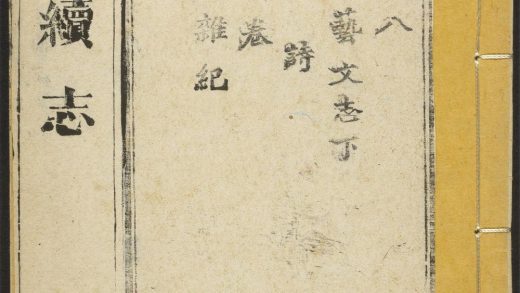 八
藝文志下
詩
卷
雜紀
續志